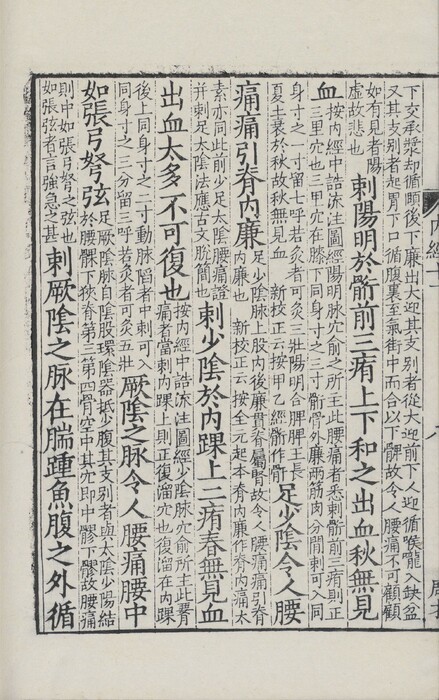 下交承漿却循頤後下廉出大迎其支别者從大迎前下人迎循喉嚨入缺盆
又其支别者起胃下口循腹裏至氣街中而合以下髀故令人腰痛不可顧顧
如有見者陽
虛故悲也
刺陽明於䯒前三痏上下和之出血秋無見
血
按内經中誥流注圖經陽明脉穴俞之所主此腰痛者悉刺䯒前三痏則正
三里穴也三里穴在膝下同身寸之三寸䯒骨外廉兩筋肉分間刺可入同
身寸之一寸留七呼若灸者可灸三壯陽明合脾脾王長
夏土衰於秋故秋無見血 新校正云按甲乙經䯒作骭
足少陰令人腰
痛痛引脊内廉
足少陰脉上股内後廉貫脊屬腎故令人腰痛痛引脊
内廉也 新校正云按全元起本脊内廉作脊内痛太
素亦同此前少足太陰腰痛證
并刺足太陰法應古文脱簡也
刺少陰於内踝上二痏春無見血
出血太多不可復也
按内經中誥流注圖經少陰脉穴俞所主此腰
痛者當刺内踝上則正復溜穴也復溜在内踝
後上同身寸之二寸動脉陷者中刺可入
同身寸之三分留三呼若灸者可灸五壯
厥陰之脉令人腰痛腰中
如張弓弩弦
足厥陰脉自陰股環陰器抵少腹其支别者與太陰少陽結
於腰髁下狹脊第三第四骨空中其穴即中髎下髎故腰痛
則中如張弓弩之弦也
如張弦者言強急之甚
刺厥陰之脉在腨踵魚腹之外循